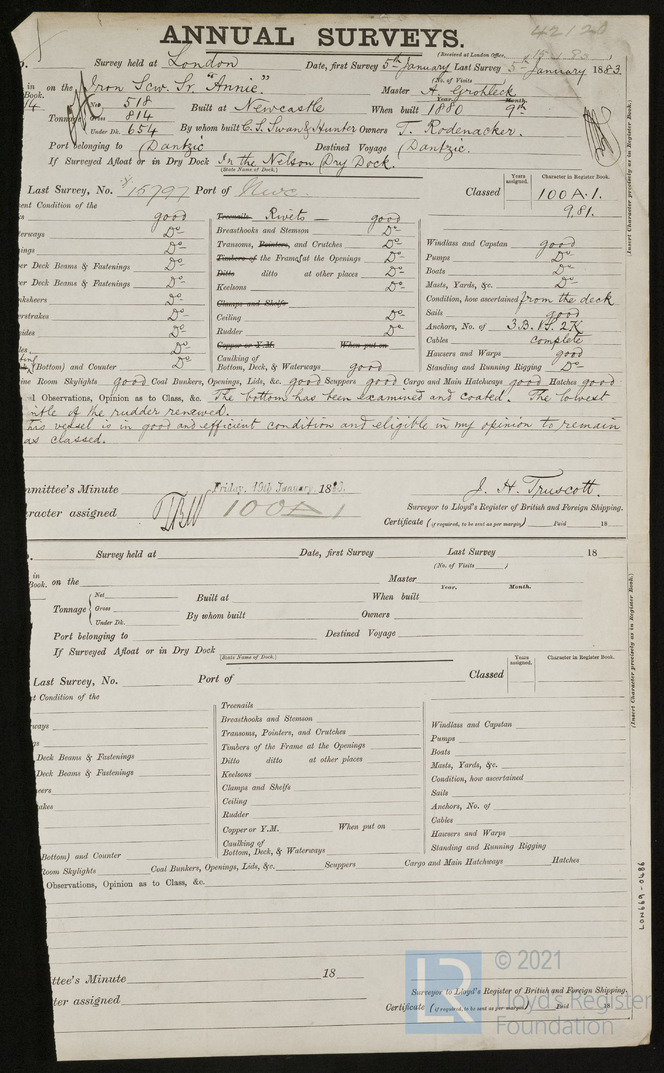 42120
ANNUAL SURVEYS.
(Received at London Office,
Survey held at London Date, first Survey 5th January Last Survey 5th January 1883.
(No. of Visits
in Book. on the Iron Scw. Sr. "Annie." Master A. Grohleck
14. Tonnage Net 518 Built at Newcastle When built Year. 1880 Month. 9th
Gross 814
Under Dk. 654 By whom built C. S. Swan & Hunter Owners T. Rodenacker.
Port belonging to Dantzic Destined Voyage Dantzic.
If Surveyed Afloat or in Dry Dock In the Nelson Dry Dock.
(State Name of Dock.)
Last Survey, No. 15797 Port of Nwc Classed Years assigned. Character in Register Book. 100 A.1.
9,81.
(Insert Character precisely as in Register Book.)
ent Condition of the
good
erways Do
ings Do
er Deck Beams & Fastenings Do
er Deck Beams & Fastenings Do
nksheers Do
erstrakes Do
sides Do
les Do
(Bottom) and Counter Do
Treenails Rivets — good
Breasthooks and Stemson Do
Transoms, Pointers, and Crutches Do
Timbers of the Frame at the Openings Do
Ditto ditto at other places Do
Keelsons Do
Clamps and Shelfs
Ceiling Do
Rudder Do
Copper or Y.M. When put on
Caulking of
Bottom, Deck, & Waterways good
Windlass and Capstan good
Pumps Do
Boats Do
Masts, Yards, &c. Do
Condition, how ascertained from the deck
Sails good
Anchors, No. of 3.B. 1S. 2K
Cables complete
Hawsers and Warps good
Standing and Running Rigging Do
ine Room Skylights good Coal Bunkers, Openings, Lids, &c. good Scuppers good Cargo and Main Hatchways good Hatches good
l Observations, Opinion as to Class, &c. The bottom has been examined and coated. The lowest
intle of the rudder renewed.
his vessel is in good and efficient condition and eligible in my opinion to remain
as classed.
mmittee's Minute Friday, 19th January 1883. J. H. Truscott.
Surveyor to Lloyd's Register of British and Foreign Shipping.
racter assigned 100A1
Certificate (if required, to be sent as per margin) Paid 18
Survey held at Date, first Survey Last Survey 18
(No. of Visits )
in Book. on the Master
Tonnage Net Built at When built Year. Month.
Gross
Under Dk. By whom built Owners
Port belonging to Destined Voyage
If Surveyed Afloat or in Dry Dock
(State Name of Dock.)
Last Survey, No. Port of Classed Years assigned. Character in Register Book.
(Insert Character precisely as in Register Book.)
t Condition of the
ways
gs
Deck Beams & Fastenings
Deck Beams & Fastenings
eers
akes
Bottom) and Counter
Treenails
Breasthooks and Stemson
Transoms, Pointers, and Crutches
Timbers of the Frame at the Openings
Ditto ditto at other places
Keelsons
Clamps and Shelfs
Ceiling
Rudder
Copper or Y.M. When put on
Caulking of
Bottom, Deck, & Waterways
Windlass and Capstan
Pumps
Boats
Masts, Yards, &c.
Condition, how ascertained
Sails
Anchors, No. of
Cables
Hawsers and Warps
Standing and Running Rigging
Room Skylights Coal Bunkers, Openings, Lids, &c. Scuppers Cargo and Main Hatchways Hatches
Observations, Opinion as to Class, &c.
LON669-0486
ttee's Minute 18
Surveyor to Lloyd's Register of British and Foreign Shipping.
ter assigned
Certificate (if required, to be sent as per margin) Paid 18
LR
© 2021
Lloyd's Register
Foundation